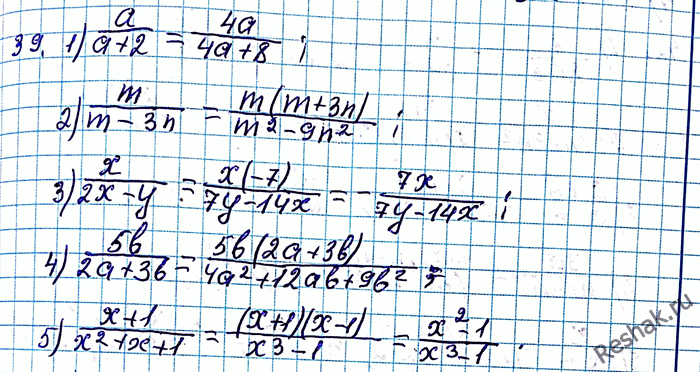 39. 1) a/(a+2) = 4a/(4a+8) ;
2) m/(m-3n) = m(m+3n)/(m²-9n²) ;
3) x/(2x-y) = x(-7)/(7y-14x) = -7x/(7y-14x) ;
4) 5b/(2a+3b) = 5b(2a+3b)/(4a²+12ab+9b²) ;
5) (x+1)/(x²+x+1) = (x+1)(x-1)/(x³-1) = (x²-1)/(x³-1) .
Reshak.ru